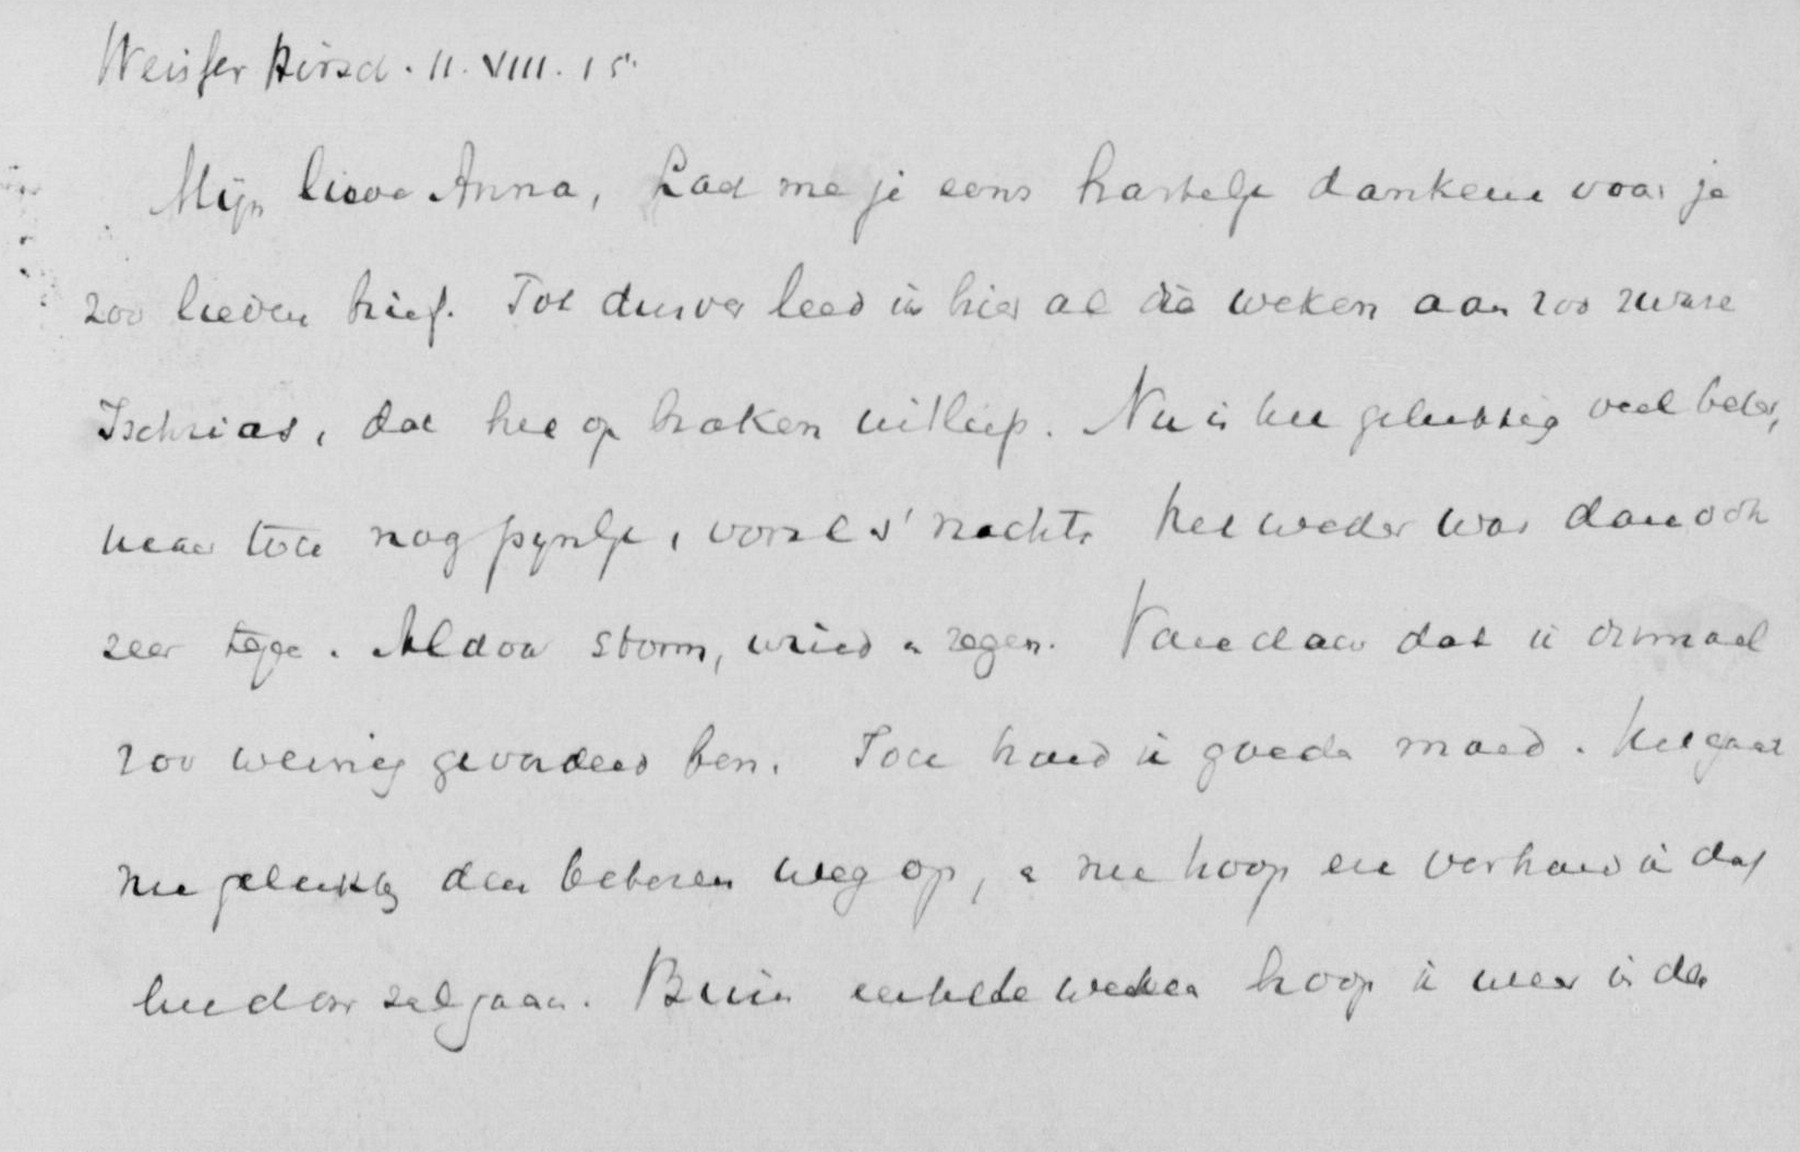 Weisser Hirsch. 11. VIII. 15.
Mijn lieve Anna, Laat me je eens hartelijk danken voor je
zoo lieven brief. Tot dusver leed ik hier al die weken aan zoo zware
Ischias, dat het op braken uitliep. Nu is het gelukkig veel beter,
maar toch nog pijnlijk, vooral s' nachts het weder was dan ook
zeer tegen. Aldoor storm, wind en regen. Vandaar dat ik ditmaal
zoo weinig gevorderd ben. Toch houd ik goede moed. Het gaat
nu gelukkig den beteren weg op, en nu hoop en vertrouw ik dat
het door zal gaan. Binnen enkele weken hoop ik weer in den